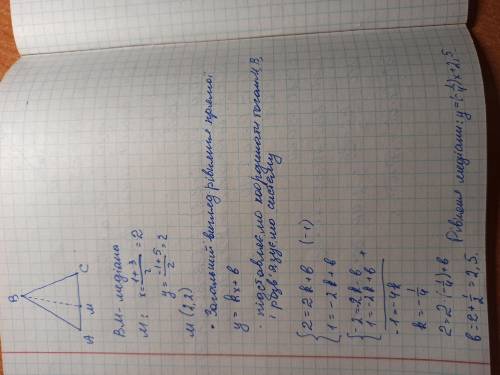 B
A
M
C
BM - медіана
M: x = (1+3)/2 = 2
y = (-1+5)/2 = 2
M (2,2)
• Загальний вигляд рівняння прямої:
y = kx + b
• підставляємо координати точок M, B
і розв'язуємо систему
{2 = 2k + b (-1)
{1 = -2k + b
{-2 = 2k - b +
{1 = -2k + b
-1 = -4k
k = -1/4
2 = 2·(-1/4) + b
b = 2 + 1/2 = 2,5.
Рівняння медіани: y = (-1/4)x + 2,5